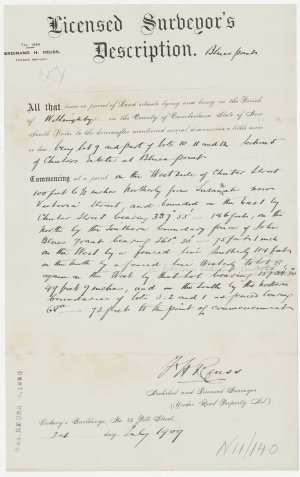 Licensed Surveyor's
Description.
TEL. 1290
FERDINAND H. REUSS,
Licensed Surveyor
Blues point
All that piece or parcel of Land situate lying and being in the Parish
of Willoughby in the County of Cumberland State of New
South Wales be the hereinafter mentioned several dimensions a little more
or less being lot 9 and part of lots 10 11 and 12 Section 5
of Chuters Estate at Blues point
Commencing at a point on the West side of Chuter Street
100 feet 6 1/2 inches Northerly from now
Victoria Street, and bounded on the East by
Chuter Street bearing 339° 55' 146 feet, on the
north by the Southern boundary of John
Blues Grant bearing 261° 30' 75 feet inch
on the West by a fenced line Southerly 104 feet
on the north by a fenced line Westerly to lot 8
again on the West by that lot bearing
49 feet 9 inches, and on the South by the northern
boundaries of lots 3 2 and 1 as fenced bearing
68° 72 feet to the point of commencement
F H Reuss
Architect and Licensed Surveyor
(Under Real Property Act).
Vickery's Buildings, No. 82 Pitt Street,
day July 1909
Don. REUSS c.1983
N11/140